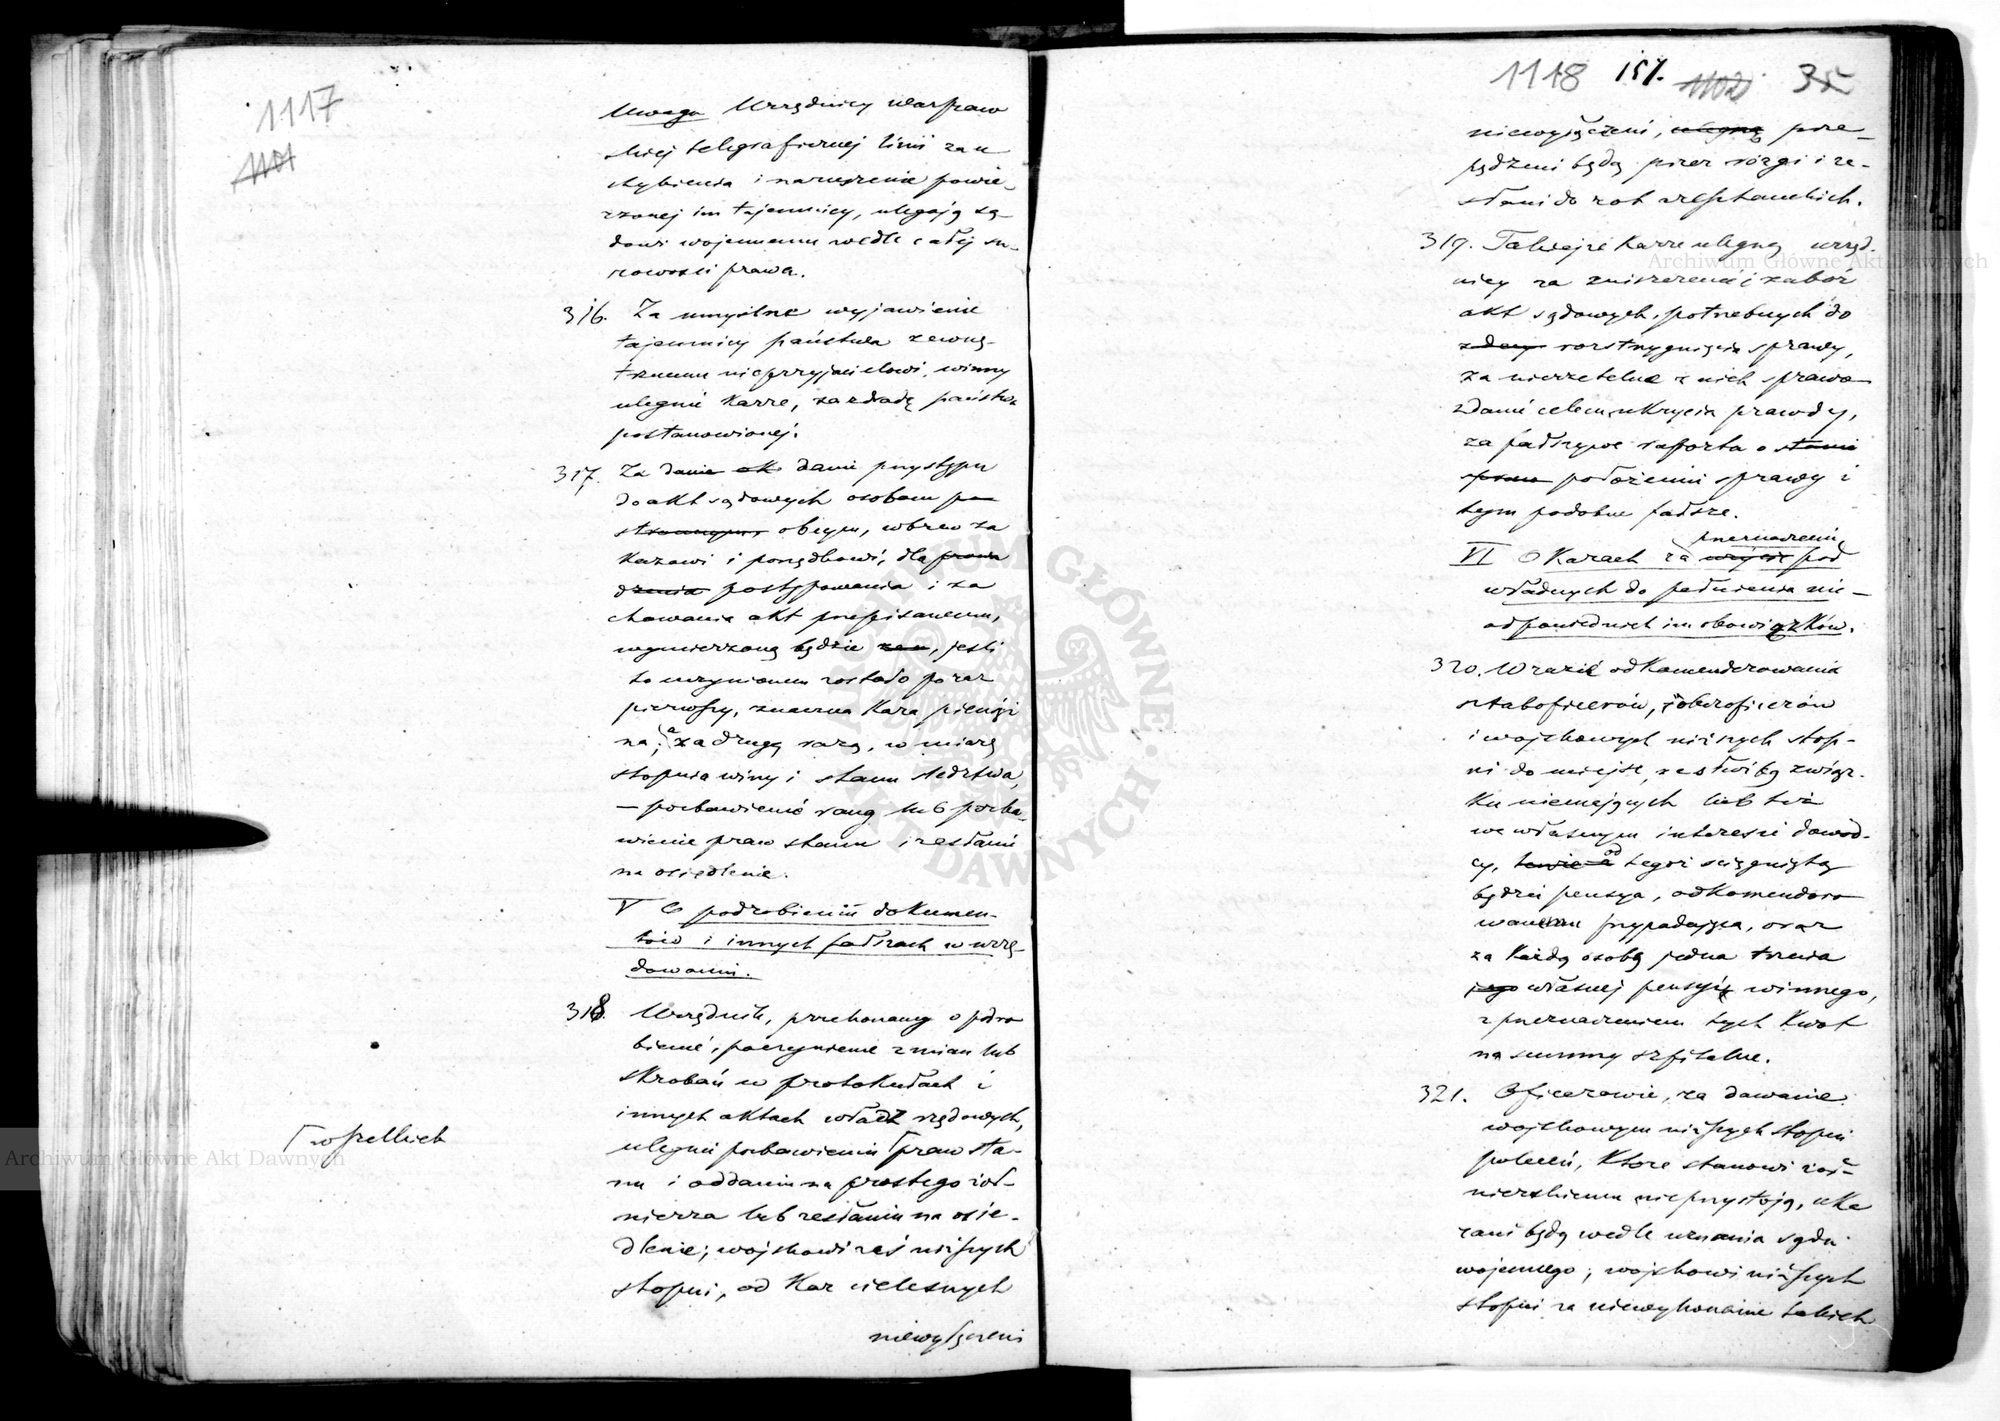 1117
1101
Uwaga Urzędnicy warszaw
skiej telegraficznej linii za u
chybienia i naruszenie powie-
rzonej im tajemnicy, ulegają są-
dowi wojennemu wedle całej su-
rowości prawa.
316. Za umyślne wyjawienie
tajemnicy państwa zewnę-
trznemu nieprzyjacielowi, winny
ulegnie karze, za zdradę państwa
postanowionej.
317. Za danie ak danie przystępu
do akt sądowych osobom po
stronnym obcym, wbrew za
kazowi i porządkowi, dla prowa
dzenia postępowania i za
chowania akt przepisanemu,
wymierzoną będzie, jeśli
to uczynionem zostało po raz
pierwszy, znaczna kara pienięż
na, a za drugą razą, w miarę
stopnia winy i stanu śledztwa,
— pozbawienie rang lub pozba-
wienie praw stanu i zesłanie
na osiedlenie.
V O podrobieniu dokumen-
tów i innych fałszach w urzę-
dowaniu.
318. Urzędnik, przekonany o podro
bienie, poczynienie zmian lub
skrobań w protokułach i
innych aktach władz rządowych,
ulegnie pozbawieniu ⌈praw sta-
nu i oddaniu na prostego żoł-
nierza lub zesłaniu na osie-
dlenie; wojskowi zaś niższych
stopni, od kar cielesnych
niewyłączeni
⌈wszelkich
1118 157. 1102 35
niewyłączeni, ulegną prze-
pędzeni będą przez rózgi i ze-
słani do rot aresztanckich.
319. Takiejże karze ulegną urzęd-
nicy za zniszczenie i zabór
akt sądowych, potrzebnych do
zdecy rozstrzygnięcia sprawy,
za nierzetelne z nich sprawo
zdanie celem ukrycia prawdy,
za fałszywe raporta o stanie
spraw położeniu sprawy i
tym podobne fałsze.
VI O karach za użycie przeznaczenie pod
władnych do pełnienia nie-
odpowiednich im obowiązków.
320. W razie odkomenderowania
sztaboficerów, i oberoficerów
i wojskowych niższych stop-
ni do miejsc, ze służbą związ-
ku niemających lub też
we własnym interesie dowód-
cy, od tegoż ściągniętą
będzie pensya, odkomendero
wanemu przypadająca, oraz
za każdą osobę jedna trzecia
jego własnej pensyi winnego,
z przeznaczeniem tych kwot
na summy szpitalne.
321. Oficerowie, za dawanie
wojskowym niższych stopni
poleceń, które stanowi żoł-
nierskiemu nie przystoją, uka
rani będą wedle uznania sądu
wojennego; wojskowi niższych
stopni za niewykonanie takich
Archiwum Główne Akt Dawnych
Archiwum Główne Akt Dawnych
ARCHIWUM GŁÓWNE AKT DAWNYCH